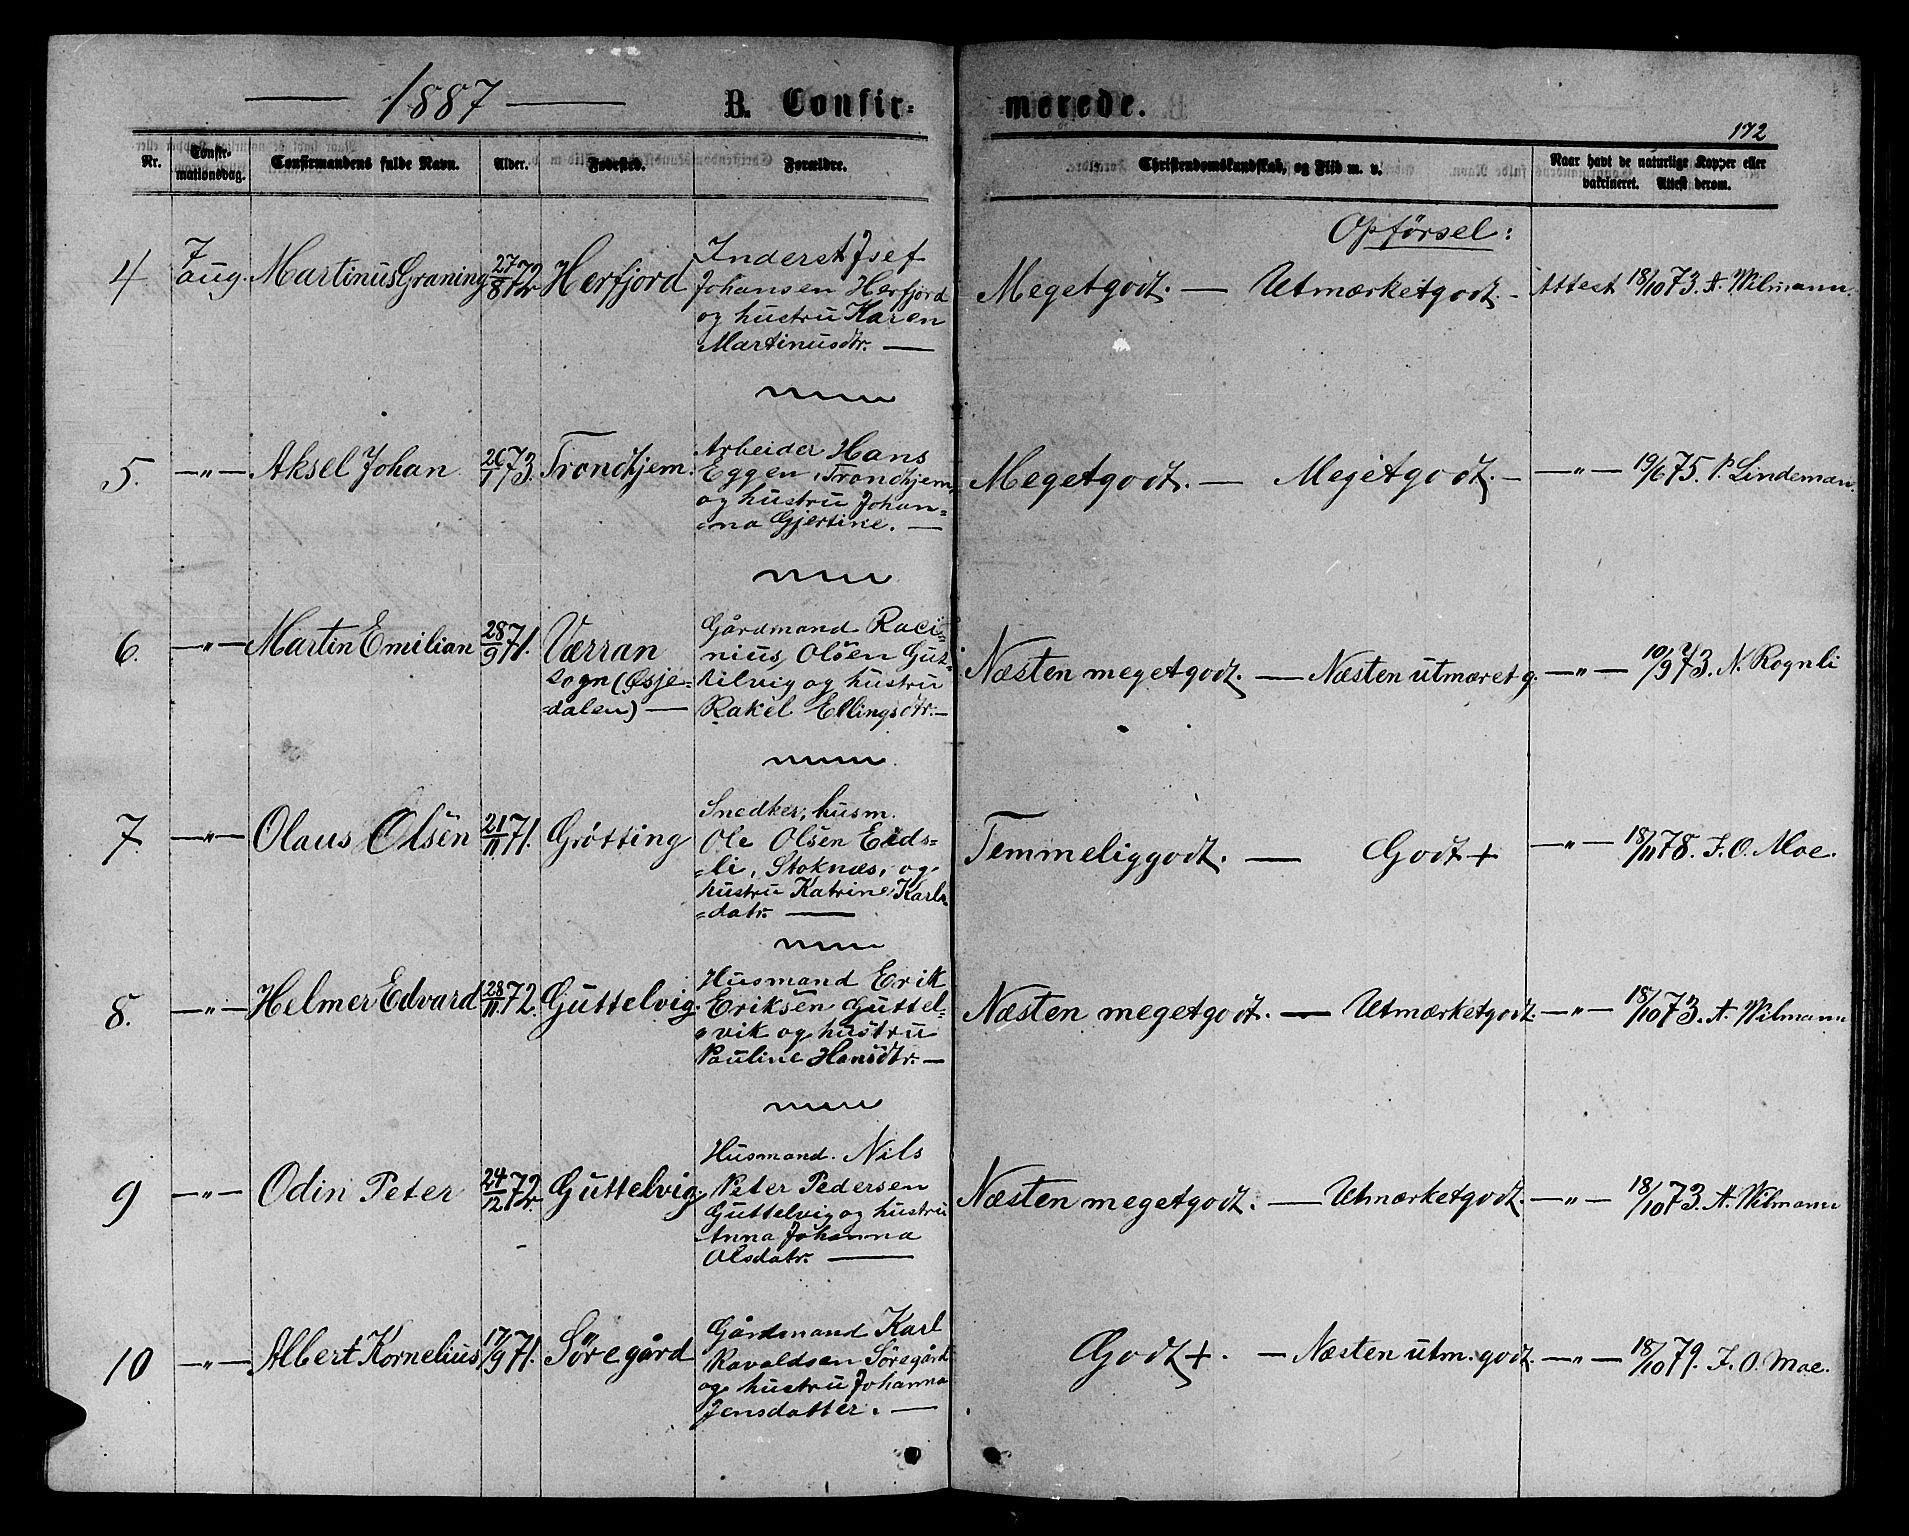 1887 B. Confirmerede.
172
Nr. Confirmationsdag. Confirmandens fulde Navn. Alder. Fødested. Forældre. Christendomskundskab, og Flid m. v. Naar havt de naturlige Kopper eller vakcineret. Attest derom.
Opførsel:
4 7 aug. Martinus Graning 27/8 72 Herfjord
Inderst Jsef
Johansen Herfjord
og hustru Karen
Martinusdtr. —
Meget godt. — Utmærket godt. - Attest 18/10 73. A. Wilmann.
5. —"— Aksel Johan 73. Trondhjem.
Arbeider Hans
Eggen, Trondhjem,
og hustru Johan=
=na Gjertine. —
Meget godt. — Meget godt. - —"— 19/6 75. P. Lindeman.
6. —"— Martin Emilian 28/9 71. Værran
sogn (Øsje=
=dalen) —
Gårdmand Raci=
nius Olsen Gut=
tilvig og hustru
Rakel Ellingsdtr. —
Næsten meget godt. — Næsten utmæret g. —"— 10/9 73. N. Rognli
7. —"— Olaus Olsen 21/11 71. Grøtting
Snedker, husm.
Ole Olsen Eids=
=li, Stoknæs, og
hustru Katrine Karls=
=datr. —
Temmelig godt. — Godt + —"— 18/11 78. F. O. Moe.
8. —"— Helmer Edvard 28/11 72. Guttelvig.
Husmand Erik
Eriksen Guttel=
vik og hustru
Pauline Hansdtr. —
Næsten meget godt. — Utmærket godt. —"— 18/10 73. A. Wilmann
9 —"— Odin Peter 24/12 72. Guttelvig
Husmand. Nils
Peter Pedersen
Guttelvig og hustru
Anna Johanna
Olsdatr. —
Næsten meget godt. — Utmærket godt. —"— 18/10 73. A. Wilmann
10 —"— Albert Kornelius 17/9 71. Söregård
Gårdmand Karl
Ravaldsen Söregård
og hustru Johanna
Jensdatter. —
Godt +. — Næsten utm. godt. —"— 18/10 79. F. O. Moe.